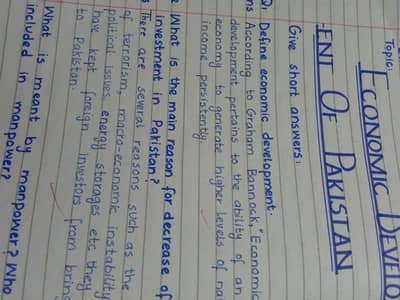 Topic
ECONOMIC DEVELO
ENT OF PAKISTAN
Give short answers:
Q: Define economic development.
According to Graham Bannock, "Economic
development pertains to the ability of an
economy to generate higher levels of na
income persistently
What is the main reason for decrease of
investment in Pakistan?
There are several reasons such as the
of terrorism, macro-economic instability
political issues energy storages etc they
have kept foreign investors from bring
to Pakistan.
What is meant by manpower? Who
included in manpower?